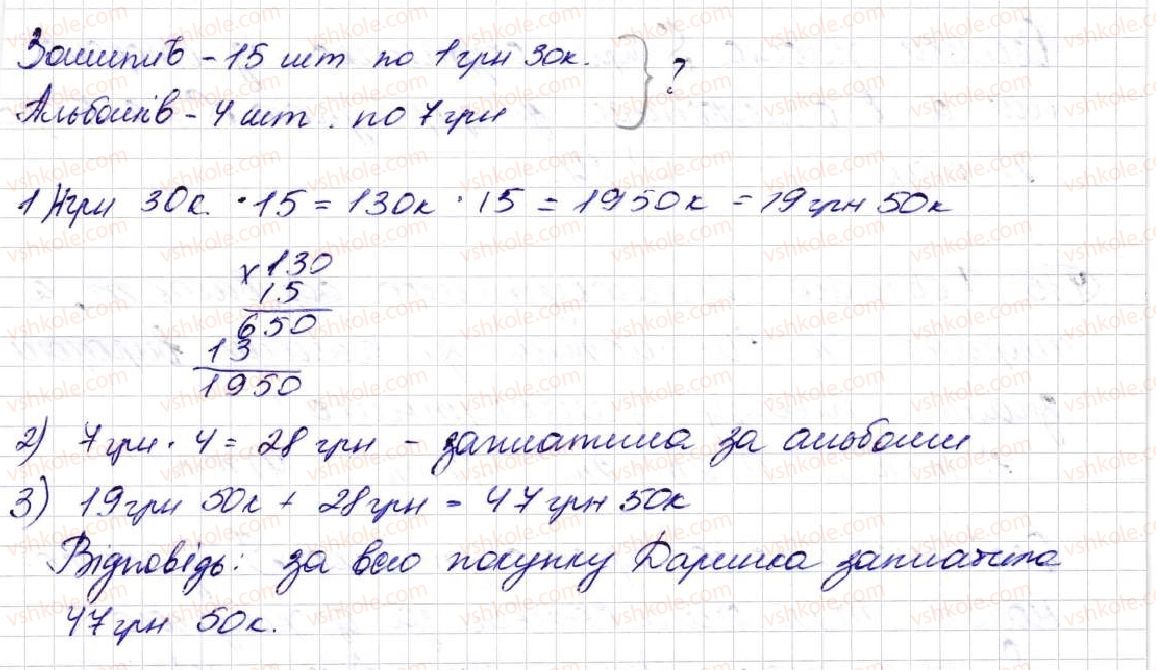 Зошитів - 15 шт по 1грн 30к.
Альбомів - 4 шт. по 7 грн
?
1) 1грн 30к. · 15 = 130к · 15 = 1950к = 19грн 50к
х130
15
650
13
1950
2) 7грн · 4 = 28 грн - заплатила за альбоми
3) 19грн 50к + 28грн = 47грн 50к
Відповідь: за всю покупку Даринка заплатила
47грн 50к.